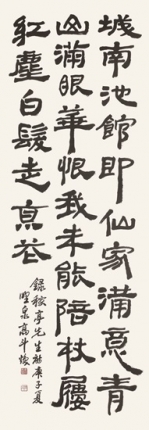 城南池館即仙家滿意青
山滿眼華恨我未能陪杖屨
紅塵白髮走京華
錄稼亭先生詩庚子夏
聖泉高斗煥